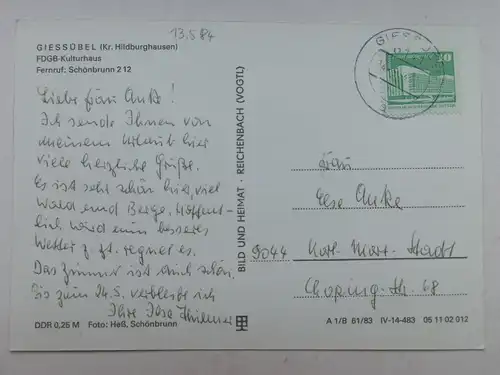 13.5.84
GIESSÜBEL (Kr. Hildburghausen)
FDGB-Kulturhaus
Fernruf: Schönbrunn 2 12
Liebe Frau Anke!
Ich sende Ihnen von
meinem Urlaub hier
viele herzliche Grüße.
Es ist sehr schön hier, viel
Wald und Berge, Hoffent-
lich wird nun besseres
Wetter z. Zt. regnet es.
Das Zimmer ist auch schön.
Bis zum 24.5. verbleibe ich
Ihre Ilse
DDR 0,25 M Foto: Heß, Schönbrunn
BILD UND HEIMAT · REICHENBACH (VOGTL)
GIESS
10
Frau
Else Anke
9044 Karl-Marx-Stadt
Str. 68
A 1/B 61/83 IV-14-483 05 11 02 012